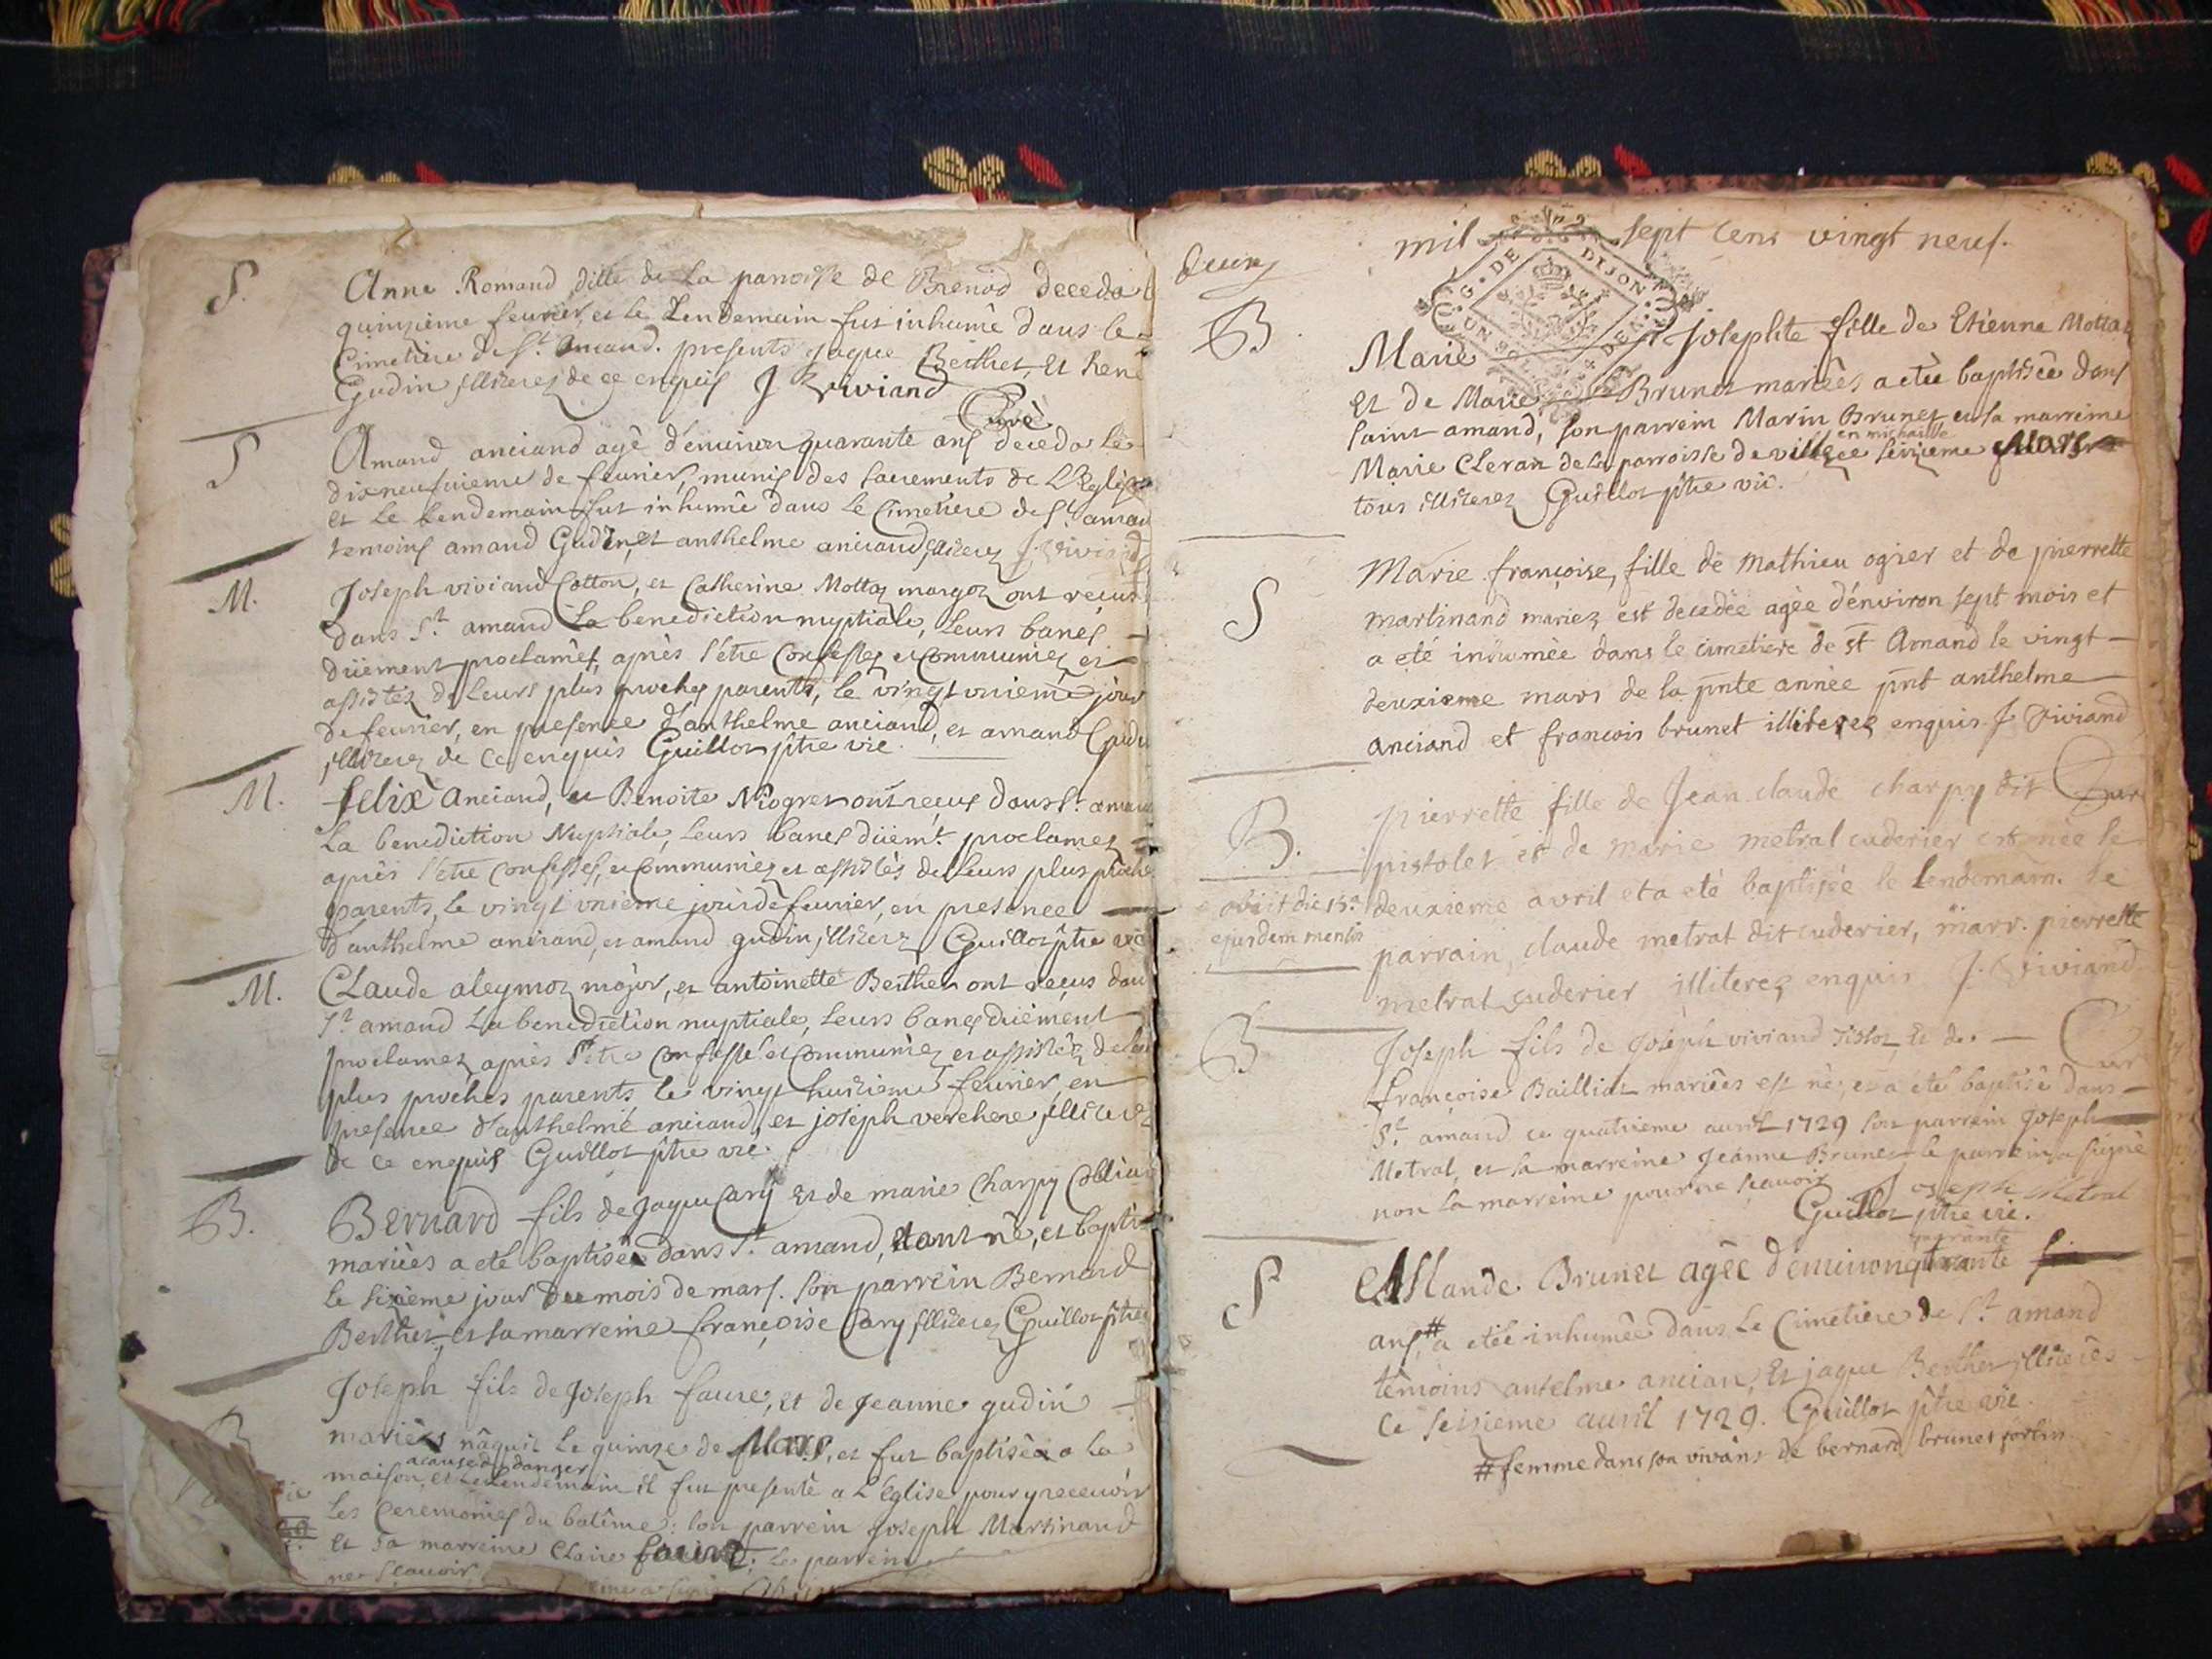 S.
Anne Romand fille de La parroisse de Brenod deceda
quinzième feurier, et le Lendemain fut inhumê dans le
Cimetière de St. Amand. presents Jaque Berthet, Et René
Gudin illiterez de ce enquis J Viviand
Curè
S
Amand anciand agê d'enuiron quarante ans deceda le
dixneufuieme de feurier, munis des sacrements de L'Eglise
et le Lendemain fut inhumê dans le Cimetiere de St amand
temoins amand Gudin, et anthelme anciand illiterez J. Viviand
M.
Joseph viviand Cotton, et Catherine Mottaz margoz ont reçus
dans St. amand La benediction nuptiale, Leurs bancs
düement proclamês, après s'etre Confessez et Communiez et
assistez de Leurs plus proches parents, le vingt vnieme jour
de feurier, en presence d'anthelme anciand, et amand Gudin
illiterez de ce enquis Guillot ptre vic.
M.
felix Anciand, et Benoite Niogret ont reçus dans St. amand
La benediction Nuptiale, Leurs bancs düemt. proclamez
après s'etre Confessés, et Communiez et assistés de Leurs plus proches
parents, le vingt vnième jour de feurier, en presence
d'anthelme anciand, et amand gudin illiterez Guillot ptre vic
M.
Claude aleymoz major, et antoinette Berthet ont reçus dans
St amand La benediction nuptiale, Leurs bancs düement
proclamez après s'etre Confessé et Communiez et assistéz de Leurs
plus proches parents le vingt huitieme feurier en
presence d'anthelme anciand, et joseph verchere illiterez
de ce enquis Guillot ptre vic.
B.
Bernard fils de Jaque Cary Et de marie Charpy Colliard
mariès a eté baptisê dans St. amand, étant né, et baptisé
le sixième jour du mois de mars. son parrein Bernard
Berthet, et sa marreine françoise Cary illiterez Guillot ptre
Joseph fils de Joseph faure, et de Jeanne gudin
mariês nâquit le quinze de Mars, et fut baptisê a la
acause du danger
maison, et Le Lendemain il fut presentê a L'Eglise pour y receuoir
Les Ceremonies du batême: son parrein Joseph Martinand
Et sa marreine Claire faure: Le parrein
ne sçauoir
mil sept cens vingt neuf.
deux
B.
Marie Josephte fille de Etienne Mottaz
Et de Marie Brunet mariées a etèe baptisèe dans
saint amand, son parrein Marin Brunet et sa marreine
en michaille
Marie Cleran de la parroisse de ville ce seizieme Mars
tous illiterez Guillot ptre vic.
S
Marie françoise, fille de Mathieu ogier et de pierrette
martinand mariez est decedée agèe d'environ sept mois et
a eté inhumèe dans le cimetiere de st Amand le vingt
deuxieme mars de la pnte annèe pnt anthelme
anciand et francois brunet illiterez enquis J Viviand
Cure
B.
pierrette fille de Jean claude charpy dit
pistolet et de marie metral cuderier est née le
obiit die 15a
deuxieme avril et a eté baptisée le lendemain. le
ejusdem mensis
parrain, claude metrat dit cuderier, marr. pierrette
metrat cuderier illiterez enquis J. Viviand
Cur
B
Joseph fils de Joseph viviand Tistot et de
françoise Bailliat mariêes est né, et a eté baptisê dans
St. amand ce quatrieme auril 1729 son parrein Joseph
Metral, et sa marreine Jeanne Brunet le parrein a signé
non La marreine pour ne sçauoir Joseph Metral
Guillot ptre vic.
S
quarante
Claude Brunet agêe d'enuiron trante
ans # a etée inhumêe dans Le Cimetiere de St. amand
têmoins antelme ancian, Et jaque Berthet illiterés
Ce seisieme auril 1729. Guillot ptre vic.
# femme dans son vivant de bernard brunet fortin
G. DE DIJON